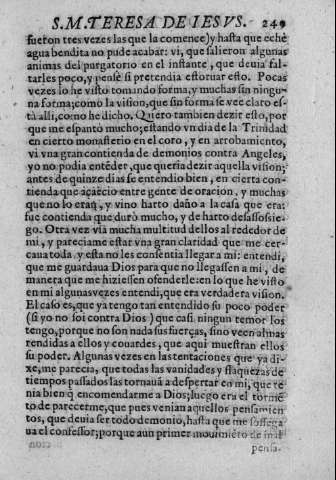 S. M. TERESA DE IESVS. 249
fueron tres vezes las que la comence) y hasta que eché
agua bendita no pude acabar: vi, que salieron algunas
animas del purgatorio en el instante, que deuia fal-
tarles poco, y pensè si pretendia estoruar esto. Pocas
vezes lo he visto tomando forma, y muchas sin ningu-
na forma; como la vision, que sin forma se vee claro es-
tà alli, como he dicho. Quiero tambien dezir esto, por
que me espantò mucho; estando vn dia de la Trinidad
en cierto monasterio en el coro, y en arrobamiento,
vi vna gran contienda de demonios contra Angeles,
yo no podia entẽder, que queria dezir aquella vision;
antes de quinze dias se entendio bien, en cierta con-
tienda que acaecio entre gente de oracion, y muchas
que no lo eran, y vino harto daño a la casa que era:
fue contienda que durò mucho, y de harto desassossie-
go. Otra vez via mucha multitud dellos al rededor de
mi, y pareciame estar vna gran claridad que me cer-
caua toda, y esta no les consentia llegar a mi: entendi,
que me guardaua Dios para que no llegassen a mi, de
manera que me hiziessen ofenderle: en lo que he visto
en mi algunas vezes entendi, que era verdadera vision.
El caso es, que ya tengo tan entendido su poco poder
(si yo no soi contra Dios) que casi ningun temor los
tengo, porque no son nada sus fuerças, sino veen almas
rendidas a ellos y couardes, que aqui muestran ellos
su poder. Algunas vezes en las tentaciones que ya di-
xe, me parecia, que todas las vanidades y flaquezas de
tiempos passados las tornauã a despertar en mi, que te
nia bien q̃ encomendarme a Dios; luego era el tormẽ
to de parecerme, que pues venian aquellos pensamien
tos, que deuia ser todo demonio, hasta que me sossega
ua el confessor; porque aun primer mouimiẽto de mal
pensa-